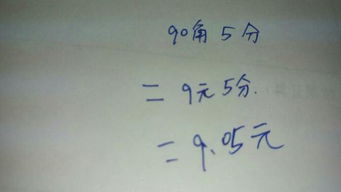 90角5分
=9元5分.
=9.05元